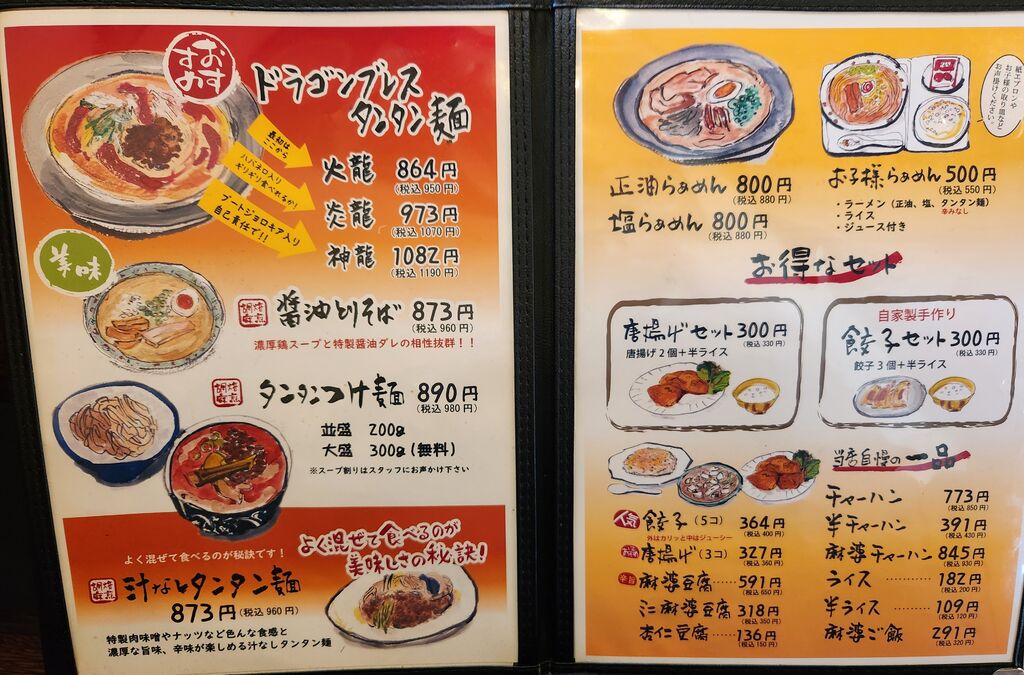 おすすめ
ドラゴンブレス
タンタン麺
最初は
ここから
火龍 864円
(税込950円)
ハバネロ入り
ギリギリ食べれるか!
炎龍 973円
(税込1070円)
ブートジョロキア入り
自己責任で!!
神龍 1082円
(税込1190円)
美味
醤油とりそば 873円
(税込960円)
濃厚鶏スープと特製醤油ダレの相性抜群!!
タンタンつけ麺 890円
(税込980円)
並盛 200g
大盛 300g(無料)
※スープ割りはスタッフにお声かけ下さい
よく混ぜて食べるのが秘訣です!
よく混ぜて食べるのが
美味しさの秘訣!
汁なしタンタン麺
873円(税込960円)
特製肉味噌やナッツなど色んな食感と
濃厚な旨味、辛味が楽しめる汁なしタンタン麺
紙エプロンや
お子様の取り皿など
お声掛けください。
正油らぁめん 800円
(税込880円)
塩らぁめん 800円
(税込880円)
お子様らぁめん 500円
(税込550円)
・ラーメン(正油、塩、タンタン麺)
辛みなし
・ライス
・ジュース付き
お得なセット
唐揚げセット 300円
(税込330円)
唐揚げ2個+半ライス
自家製手作り
餃子セット 300円
(税込330円)
餃子3個+半ライス
当店自慢の一品
人気 餃子(5コ) 364円
(税込400円)
外はカリッと中はジューシー
唐揚げ(3コ) 327円
(税込360円)
辛旨 麻婆豆腐……591円
(税込650円)
ミニ麻婆豆腐 318円
(税込350円)
杏仁豆腐……136円
(税込150円)
チャーハン 773円
(税込850円)
半チャーハン 391円
(税込430円)
麻婆チャーハン 845円
(税込930円)
ライス ……… 182円
(税込200円)
半ライス……… 109円
(税込120円)
麻婆ご飯 291円
(税込320円)